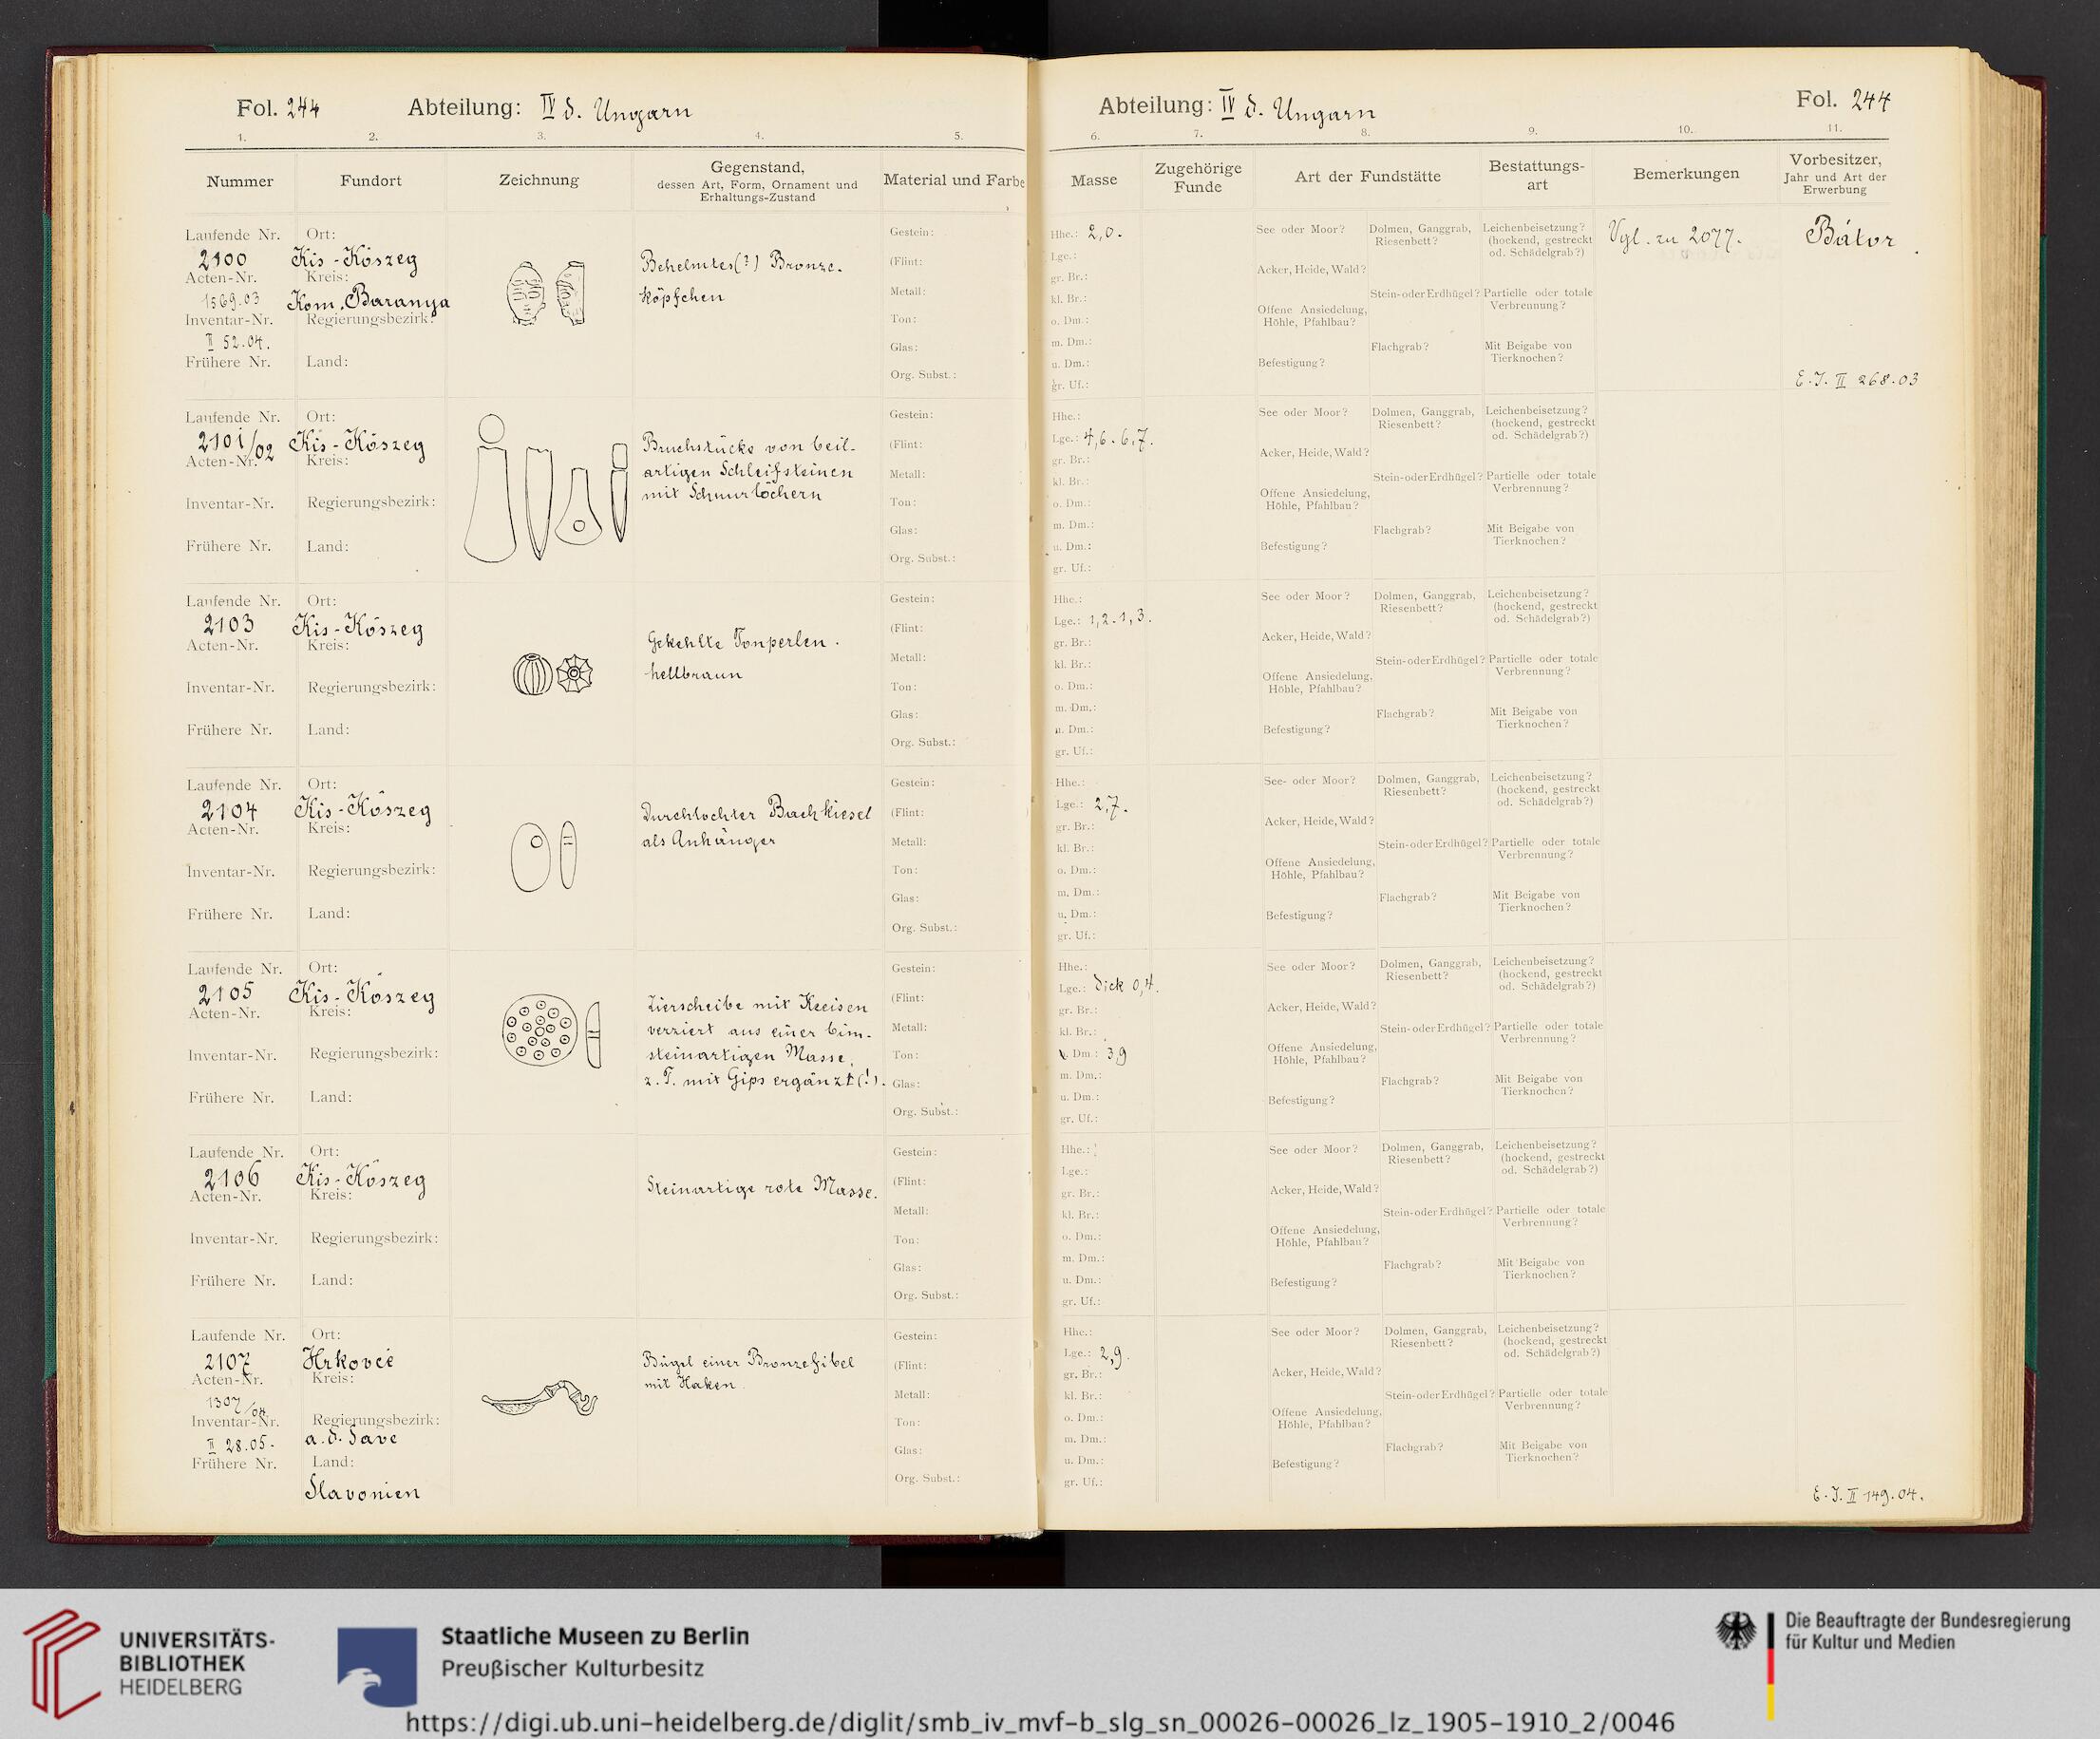 Fol. 244 Abteilung: IV d. Ungarn
1. 2. 3. 4. 5.
Nummer Fundort Zeichnung Gegenstand, dessen Art, Form, Ornament und Erhaltungs-Zustand Material und Farbe
Laufende Nr. Ort: Gestein:
2100 Kis-Kőszeg Behelmtes(?) Bronze- (Flint:
Acten-Nr. Kreis:
1569.03 Kom. Baranya köpfchen Metall:
Inventar-Nr. Regierungsbezirk: Ton:
II 52.04. Glas:
Frühere Nr. Land: Org. Subst.:
Laufende Nr. Ort: Gestein:
2101/02 Kis-Kőszeg Bruchstücke von beil- (Flint:
Acten-Nr. Kreis: artigen Schleifsteinen Metall:
mit Schnurlöchern
Inventar-Nr. Regierungsbezirk: Ton:
Glas:
Frühere Nr. Land: Org. Subst.:
Laufende Nr. Ort: Gestein:
2103 Kis-Kőszeg Gekehlte Tonperlen. (Flint:
Acten-Nr. Kreis: Metall:
hellbraun
Inventar-Nr. Regierungsbezirk: Ton:
Glas:
Frühere Nr. Land: Org. Subst.:
Laufende Nr. Ort: Gestein:
2104 Kis-Kőszeg Durchlochter Bachkiesel (Flint:
Acten-Nr. Kreis: als Anhänger Metall:
Inventar-Nr. Regierungsbezirk: Ton:
Glas:
Frühere Nr. Land: Org. Subst.:
Laufende Nr. Ort: Gestein:
2105 Kis-Kőszeg Zierscheibe mit Kreisen (Flint:
Acten-Nr. Kreis: verziert aus einer bim- Metall:
Inventar-Nr. Regierungsbezirk: steinartigen Masse, Ton:
z. T. mit Gips ergänzt(!). Glas:
Frühere Nr. Land: Org. Subst.:
Laufende Nr. Ort: Gestein:
2106 Kis-Kőszeg Steinartige rote Masse. (Flint:
Acten-Nr. Kreis: Metall:
Inventar-Nr. Regierungsbezirk: Ton:
Glas:
Frühere Nr. Land: Org. Subst.:
Laufende Nr. Ort: Gestein:
2107 Hrkovcé Bügel einer Bronzefibel (Flint:
Acten-Nr. Kreis: mit Haken. Metall:
1307/04
Inventar-Nr. Regierungsbezirk: Ton:
II 28.05. a. d. Save Glas:
Frühere Nr. Land: Org. Subst.:
Slavonien
Abteilung: IV d. Ungarn Fol. 244
6. 7. 8. 9. 10. 11.
Masse Zugehörige Funde Art der Fundstätte Bestattungs-art Bemerkungen Vorbesitzer, Jahr und Art der Erwerbung
Hhe.: 2,0. See oder Moor? Dolmen, Ganggrab, Riesenbett? Leichenbeisetzung? (hockend, gestreckt od. Schädelgrab?) Vgl. zu 2077. Bátor.
Lge.:
gr. Br.: Acker, Heide, Wald?
kl. Br.: Stein- oder Erdhügel? Partielle oder totale Verbrennung?
o. Dm.: Offene Ansiedelung, Höhle, Pfahlbau?
m. Dm.: Flachgrab? Mit Beigabe von Tierknochen?
u. Dm.: Befestigung?
gr. Uf.: E. J. II 268.03
Hhe.: See oder Moor? Dolmen, Ganggrab, Riesenbett? Leichenbeisetzung? (hockend, gestreckt od. Schädelgrab?)
Lge.: 4,6. 6,7.
gr. Br.: Acker, Heide, Wald?
kl. Br.: Stein- oder Erdhügel? Partielle oder totale Verbrennung?
o. Dm.: Offene Ansiedelung, Höhle, Pfahlbau?
m. Dm.: Flachgrab? Mit Beigabe von Tierknochen?
u. Dm.: Befestigung?
gr. Uf.:
Hhe.: See oder Moor? Dolmen, Ganggrab, Riesenbett? Leichenbeisetzung? (hockend, gestreckt od. Schädelgrab?)
Lge.: 1,2. 1,3.
gr. Br.: Acker, Heide, Wald?
kl. Br.: Stein- oder Erdhügel? Partielle oder totale Verbrennung?
o. Dm.: Offene Ansiedelung, Höhle, Pfahlbau?
m. Dm.: Flachgrab? Mit Beigabe von Tierknochen?
u. Dm.: Befestigung?
gr. Uf.:
Hhe.: See- oder Moor? Dolmen, Ganggrab, Riesenbett? Leichenbeisetzung? (hockend, gestreckt od. Schädelgrab?)
Lge.: 2,7.
gr. Br.: Acker, Heide, Wald?
kl. Br.: Stein- oder Erdhügel? Partielle oder totale Verbrennung?
o. Dm.: Offene Ansiedelung, Höhle, Pfahlbau?
m. Dm.: Flachgrab? Mit Beigabe von Tierknochen?
u. Dm.: Befestigung?
gr. Uf.:
Hhe.: See oder Moor? Dolmen, Ganggrab, Riesenbett? Leichenbeisetzung? (hockend, gestreckt od. Schädelgrab?)
Lge.: dick 0,4.
gr. Br.: Acker, Heide, Wald?
kl. Br.: Stein- oder Erdhügel? Partielle oder totale Verbrennung?
Dm.: 3,9 Offene Ansiedelung, Höhle, Pfahlbau?
m. Dm.: Flachgrab? Mit Beigabe von Tierknochen?
u. Dm.: Befestigung?
gr. Uf.:
Hhe.: See oder Moor? Dolmen, Ganggrab, Riesenbett? Leichenbeisetzung? (hockend, gestreckt od. Schädelgrab?)
Lge.:
gr. Br.: Acker, Heide, Wald?
kl. Br.: Stein- oder Erdhügel? Partielle oder totale Verbrennung?
o. Dm.: Offene Ansiedelung, Höhle, Pfahlbau?
m. Dm.: Flachgrab? Mit Beigabe von Tierknochen?
u. Dm.: Befestigung?
gr. Uf.:
Hhe.: See oder Moor? Dolmen, Ganggrab, Riesenbett? Leichenbeisetzung? (hockend, gestreckt od. Schädelgrab?)
Lge.: 2,9.
gr. Br.: Acker, Heide, Wald?
kl. Br.: Stein- oder Erdhügel? Partielle oder totale Verbrennung?
o. Dm.: Offene Ansiedelung, Höhle, Pfahlbau?
m. Dm.: Flachgrab? Mit Beigabe von Tierknochen?
u. Dm.: Befestigung?
gr. Uf.: E. J. II 149.04.
UNIVERSITÄTS-
BIBLIOTHEK
HEIDELBERG
Staatliche Museen zu Berlin
Preußischer Kulturbesitz
Die Beauftragte der Bundesregierung
für Kultur und Medien
https://digi.ub.uni-heidelberg.de/diglit/smb_iv_mvf-b_slg_sn_00026-00026_lz_1905-1910_2/0046